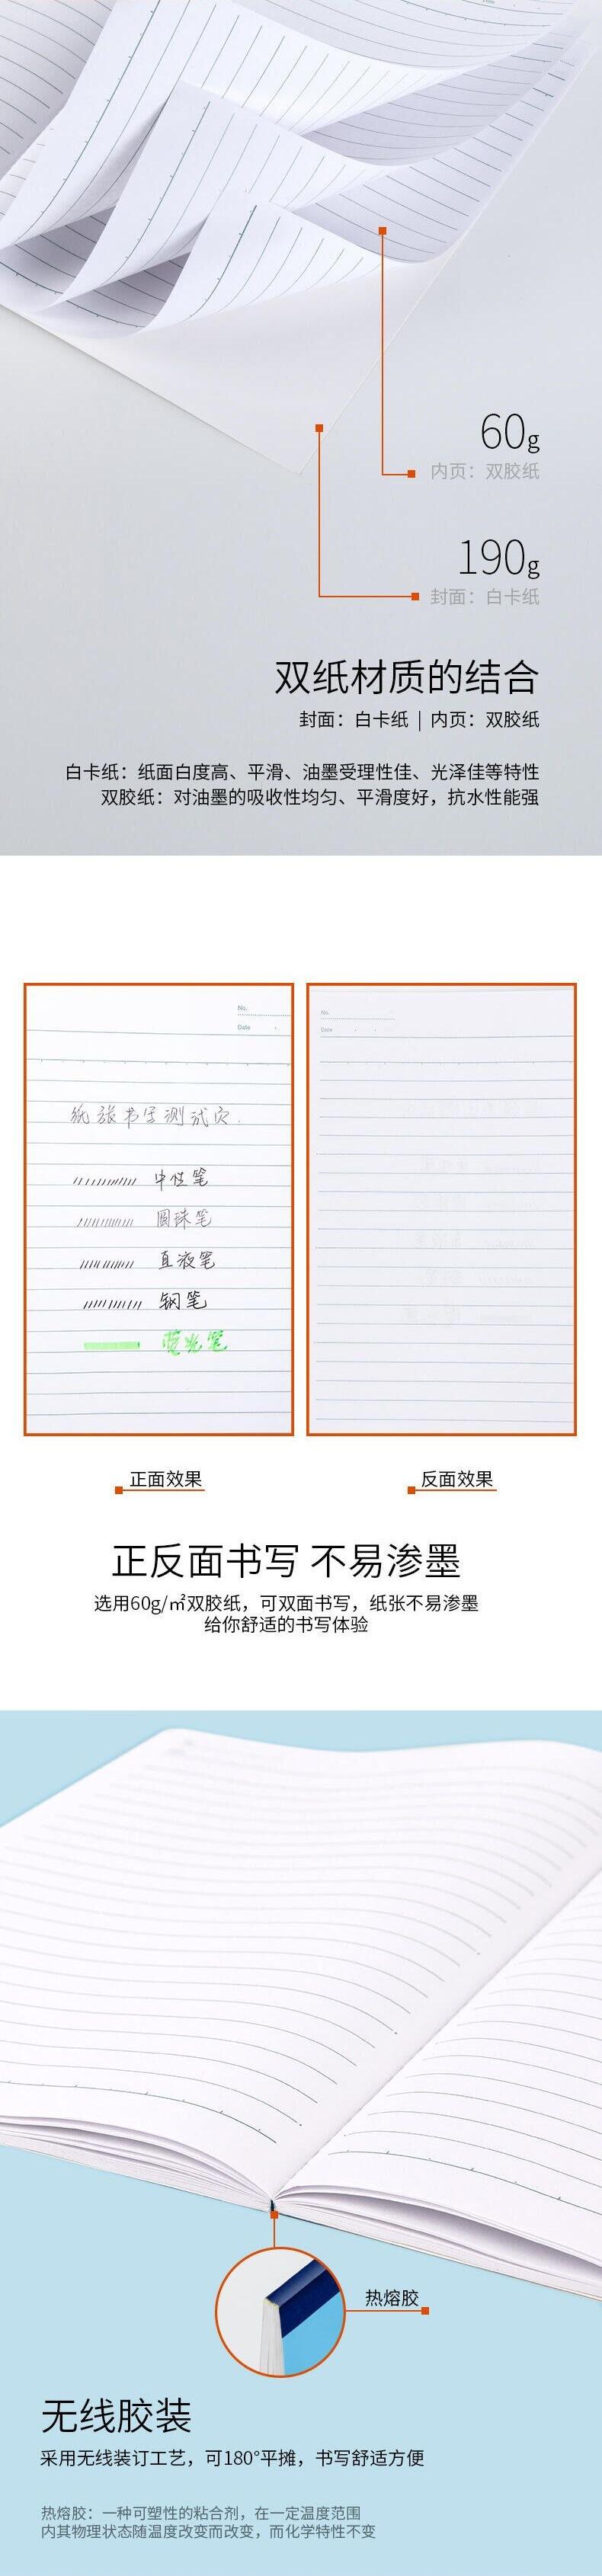 60g
内页：双胶纸
190g
封面：白卡纸
双纸材质的结合
封面：白卡纸 | 内页：双胶纸
白卡纸：纸面白度高、平滑、油墨受理性佳、光泽佳等特性
双胶纸：对油墨的吸收性均匀、平滑度好，抗水性能强
No.
Date
纸张书写测试页.
中性笔
圆珠笔
直液笔
钢笔
荧光笔
No.
Date
正面效果
反面效果
正反面书写 不易渗墨
选用60g/㎡双胶纸，可双面书写，纸张不易渗墨
给你舒适的书写体验
热熔胶
无线胶装
采用无线装订工艺，可180°平摊，书写舒适方便
热熔胶：一种可塑性的粘合剂，在一定温度范围
内其物理状态随温度改变而改变，而化学特性不变